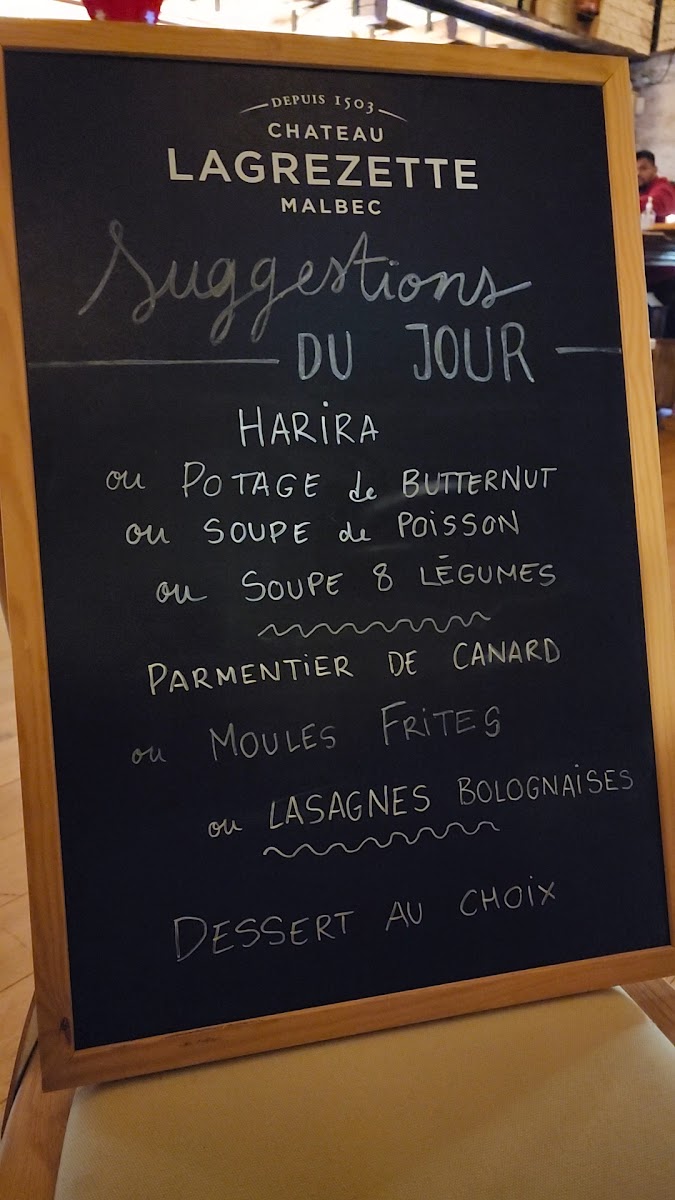 DEPUIS 1503
CHATEAU
LAGREZETTE
MALBEC
Suggestions
DU JOUR
HARiRA
ou POTAGE de BUTTERNUT
ou SOUPE de POiSSON
ou SOUPE 8 LÉGUMES
PARMENTiER DE CANARD
ou MOULES FRiTES
ou LASAGNES BOLOGNAiSES
DESSERT AU CHOiX